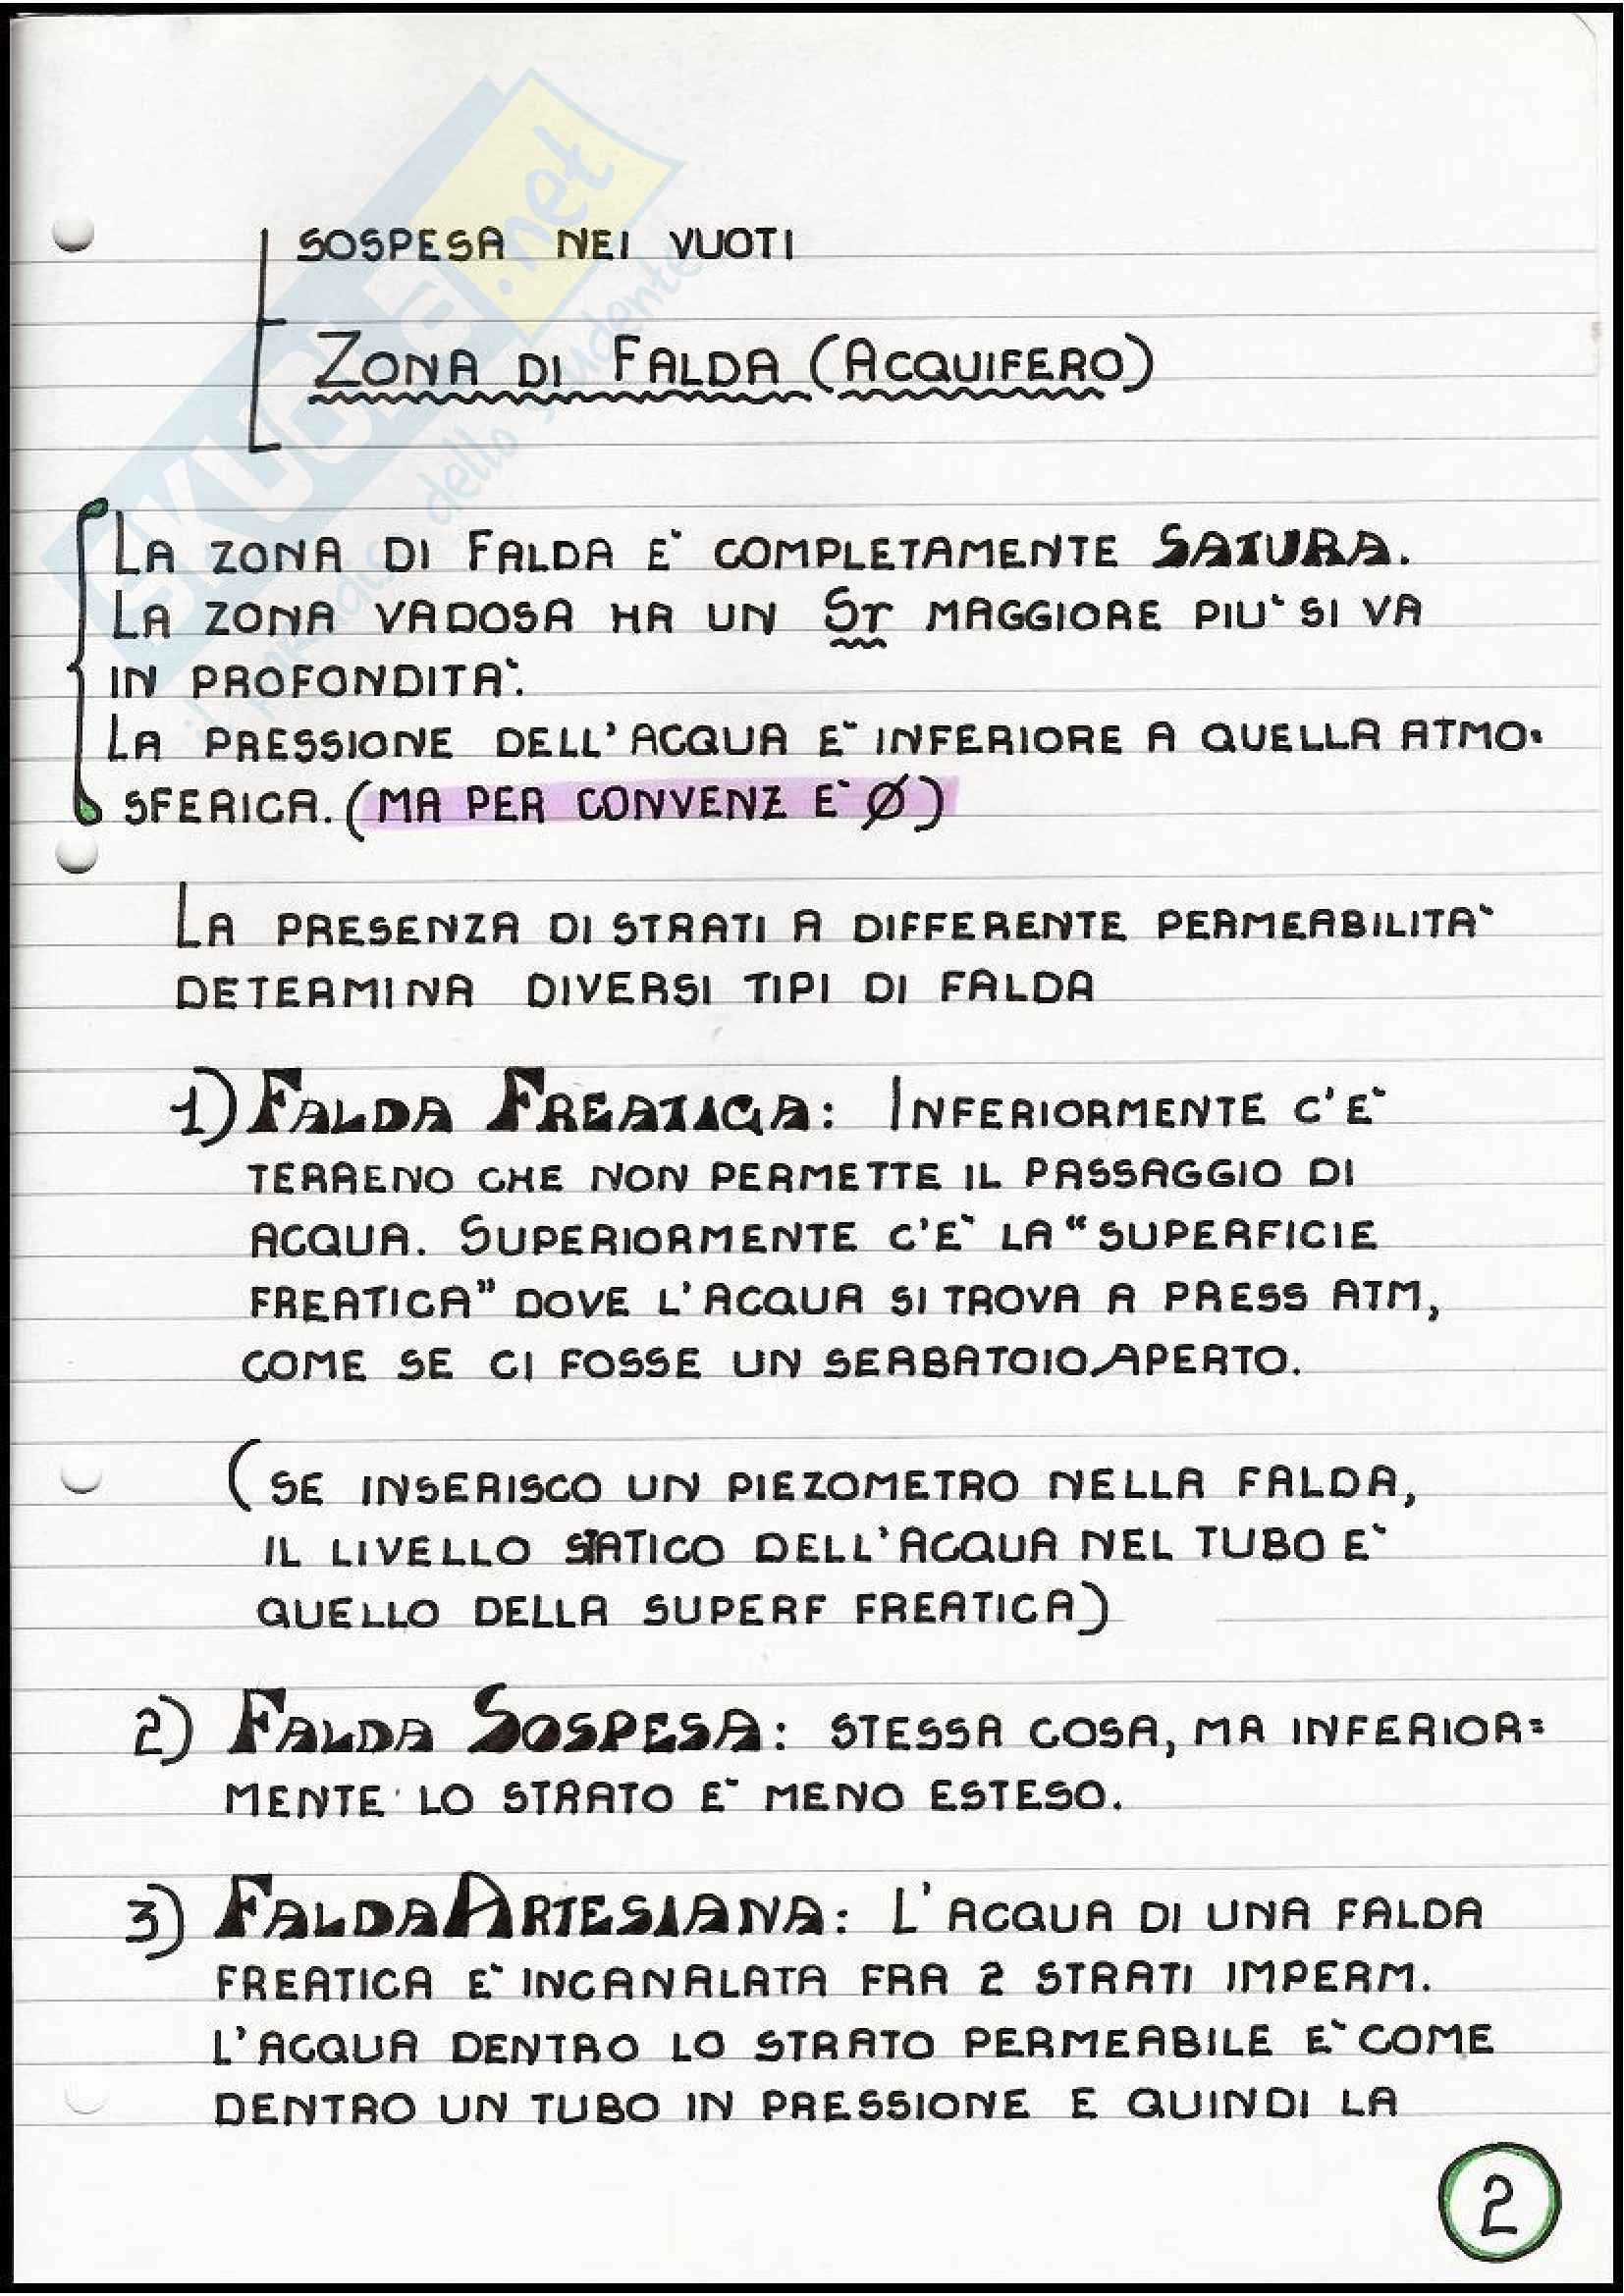 SOSPESA NEI VUOTI
ZONA DI FALDA (ACQUIFERO)
LA ZONA DI FALDA E` COMPLETAMENTE SATURA.
LA ZONA VADOSA HA UN Sr MAGGIORE PIU` SI VA
IN PROFONDITA`.
LA PRESSIONE DELL'ACQUA E` INFERIORE A QUELLA ATMO-
SFERICA. (MA PER CONVENZ E` Ø)
LA PRESENZA DI STRATI A DIFFERENTE PERMEABILITA`
DETERMINA DIVERSI TIPI DI FALDA
1) FALDA FREATICA: INFERIORMENTE C'E`
TERRENO CHE NON PERMETTE IL PASSAGGIO DI
ACQUA. SUPERIORMENTE C'E` LA "SUPERFICIE
FREATICA" DOVE L'ACQUA SI TROVA A PRESS ATM,
COME SE CI FOSSE UN SERBATOIO APERTO.
(SE INSERISCO UN PIEZOMETRO NELLA FALDA,
IL LIVELLO STATICO DELL'ACQUA NEL TUBO E`
QUELLO DELLA SUPERF FREATICA)
2) FALDA SOSPESA: STESSA COSA, MA INFERIOR=
MENTE LO STRATO E` MENO ESTESO.
3) FALDA ARTESIANA: L'ACQUA DI UNA FALDA
FREATICA E` INCANALATA FRA 2 STRATI IMPERM.
L'ACQUA DENTRO LO STRATO PERMEABILE E` COME
DENTRO UN TUBO IN PRESSIONE E QUINDI LA
2
SKUOLA.net
il paradiso dello studente